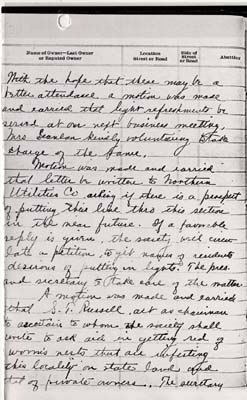 Name of Owner—Last Owner
or Reputed Owner
Location
Street or Road
Side of
Street
or Road
Abutting
With the hope that there may be a
better attendance a motion was made
and carried that light refreshments be
served at our next business meeting.
Mrs Scanlon kindly volunteering to take
charge of the same.
Motion was made and carried
that letter be written to Northern
Utilities Co. asking if there is a prospect
of putting this line thru this section
in the near future. If a favorable
reply is given, the society will circu-
late a petition, to get names of residents
desirous of putting in lights. The pres.
and secretary to take care of the matter
A motion was made and carried
that S. T. Russell, act as chairman
to ascertain to whom the society shall
write to ask aid in getting red of
worm's nests that are infesting
this locality on state land and
that of private owners. The secretary